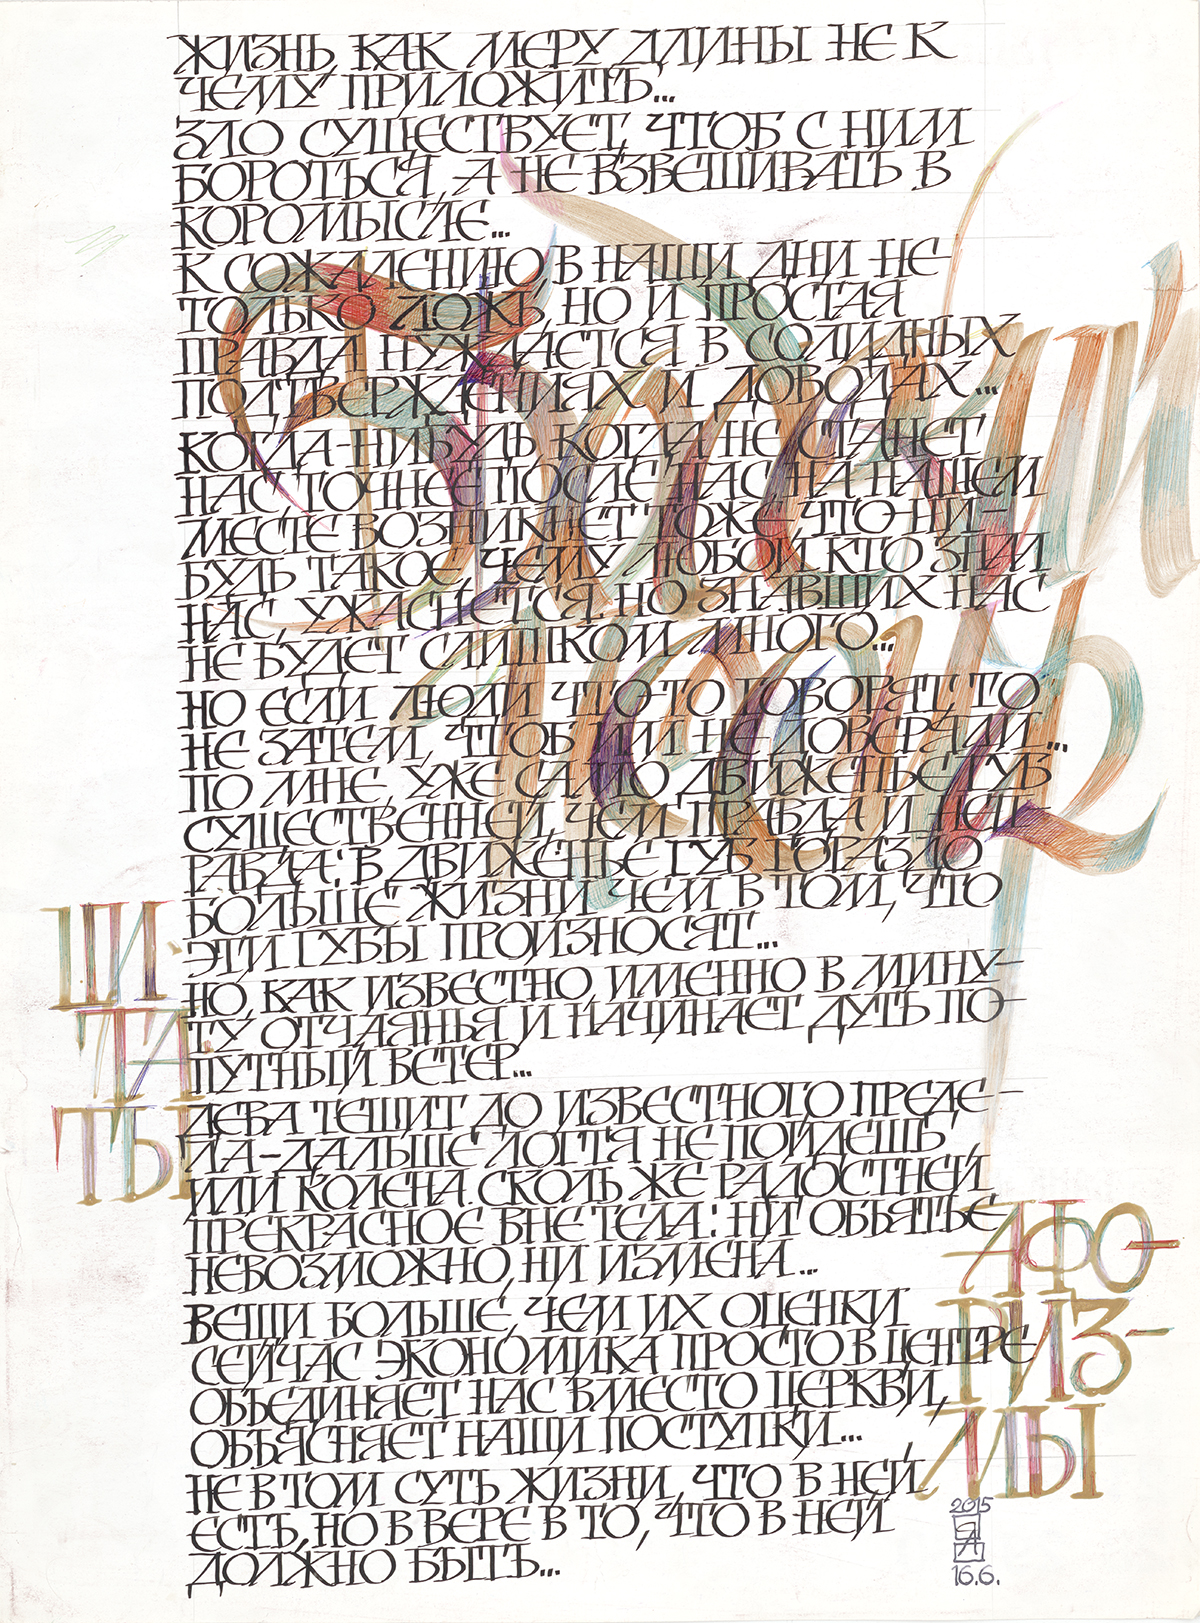 ЖИЗНЬ, КАК МЕРУ ДЛИНЫ НЕ К
ЧЕМУ ПРИЛОЖИТЬ...
ЗЛО СУЩЕСТВУЕТ, ЧТОБ С НИМ
БОРОТЬСЯ, А НЕ ВЗВЕШИВАТЬ В
КОРОМЫСЛЕ...
К СОЖАЛЕНИЮ, В НАШИ ДНИ НЕ
ТОЛЬКО ЛОЖЬ, НО И ПРОСТАЯ
ПРАВДА НУЖДАЕТСЯ В СОЛИДНЫХ
ПОДТВЕРЖДЕНИЯХ И ДОВОДАХ...
КОГДА-НИБУДЬ КОГДА НЕ СТАНЕТ
НАС ТОЧНЕЕ ПОСЛЕ НАС НА НАШЕМ
МЕСТЕ ВОЗНИКНЕТ ТОЖЕ ЧТО-НИ-
БУДЬ ТАКОЕ, ЧЕМУ ЛЮБОЙ, КТО ЗНАЛ
НАС, УЖАСНЕТСЯ. НО ЗНАВШИХ НАС
НЕ БУДЕТ СЛИШКОМ МНОГО...
НО ЕСЛИ ЛЮДИ ЧТО-ТО ГОВОРЯТ, ТО
НЕ ЗАТЕМ, ЧТОБ ИМ НЕ ДОВЕРЯЛИ...
ПО МНЕ, УЖЕ САМО ДВИЖЕНЬЕ ГУБ
СУЩЕСТВЕННЕЙ, ЧЕМ ПРАВДА И НЕП
РАВДА: В ДВИЖЕНЬЕ ГУБ ГОРАЗДО
БОЛЬШЕ ЖИЗНИ, ЧЕМ В ТОМ, ЧТО
ЭТИ ГУБЫ ПРОИЗНОСЯТ...
НО, КАК ИЗВЕСТНО, ИМЕННО В МИНУ-
ТУ ОТЧАЯНЬЯ И НАЧИНАЕТ ДУТЬ ПО-
ПУТНЫЙ ВЕТЕР...
ДЕВА ТЕШИТ ДО ИЗВЕСТНОГО ПРЕДЕ-
ЛА-ДАЛЬШЕ ЛОКТЯ НЕ ПОЙДЕШЬ
ИЛИ КОЛЕНА. СКОЛЬ ЖЕ РАДОСТНЕЙ
ПРЕКРАСНОЕ ВНЕ ТЕЛА: НИ ОБЪЯТЬЕ
НЕВОЗМОЖНО, НИ ИЗМЕНА...
ВЕЩИ БОЛЬШЕ, ЧЕМ ИХ ОЦЕНКИ
СЕЙЧАС ЭКОНОМИКА ПРОСТО В ЦЕНТРЕ
ОБЪЕДИНЯЕТ НАС ВМЕСТО ЦЕРКВИ,
ОБЪЯСНЯЕТ НАШИ ПОСТУПКИ...
НЕ В ТОМ СУТЬ ЖИЗНИ, ЧТО В НЕЙ
ЕСТЬ, НО В ВЕРЕ В ТО, ЧТО В НЕЙ
ДОЛЖНО БЫТЬ...
ЦИ
ТА
ТЫ
АФО-
РИЗ-
МЫ
2015
16.6.